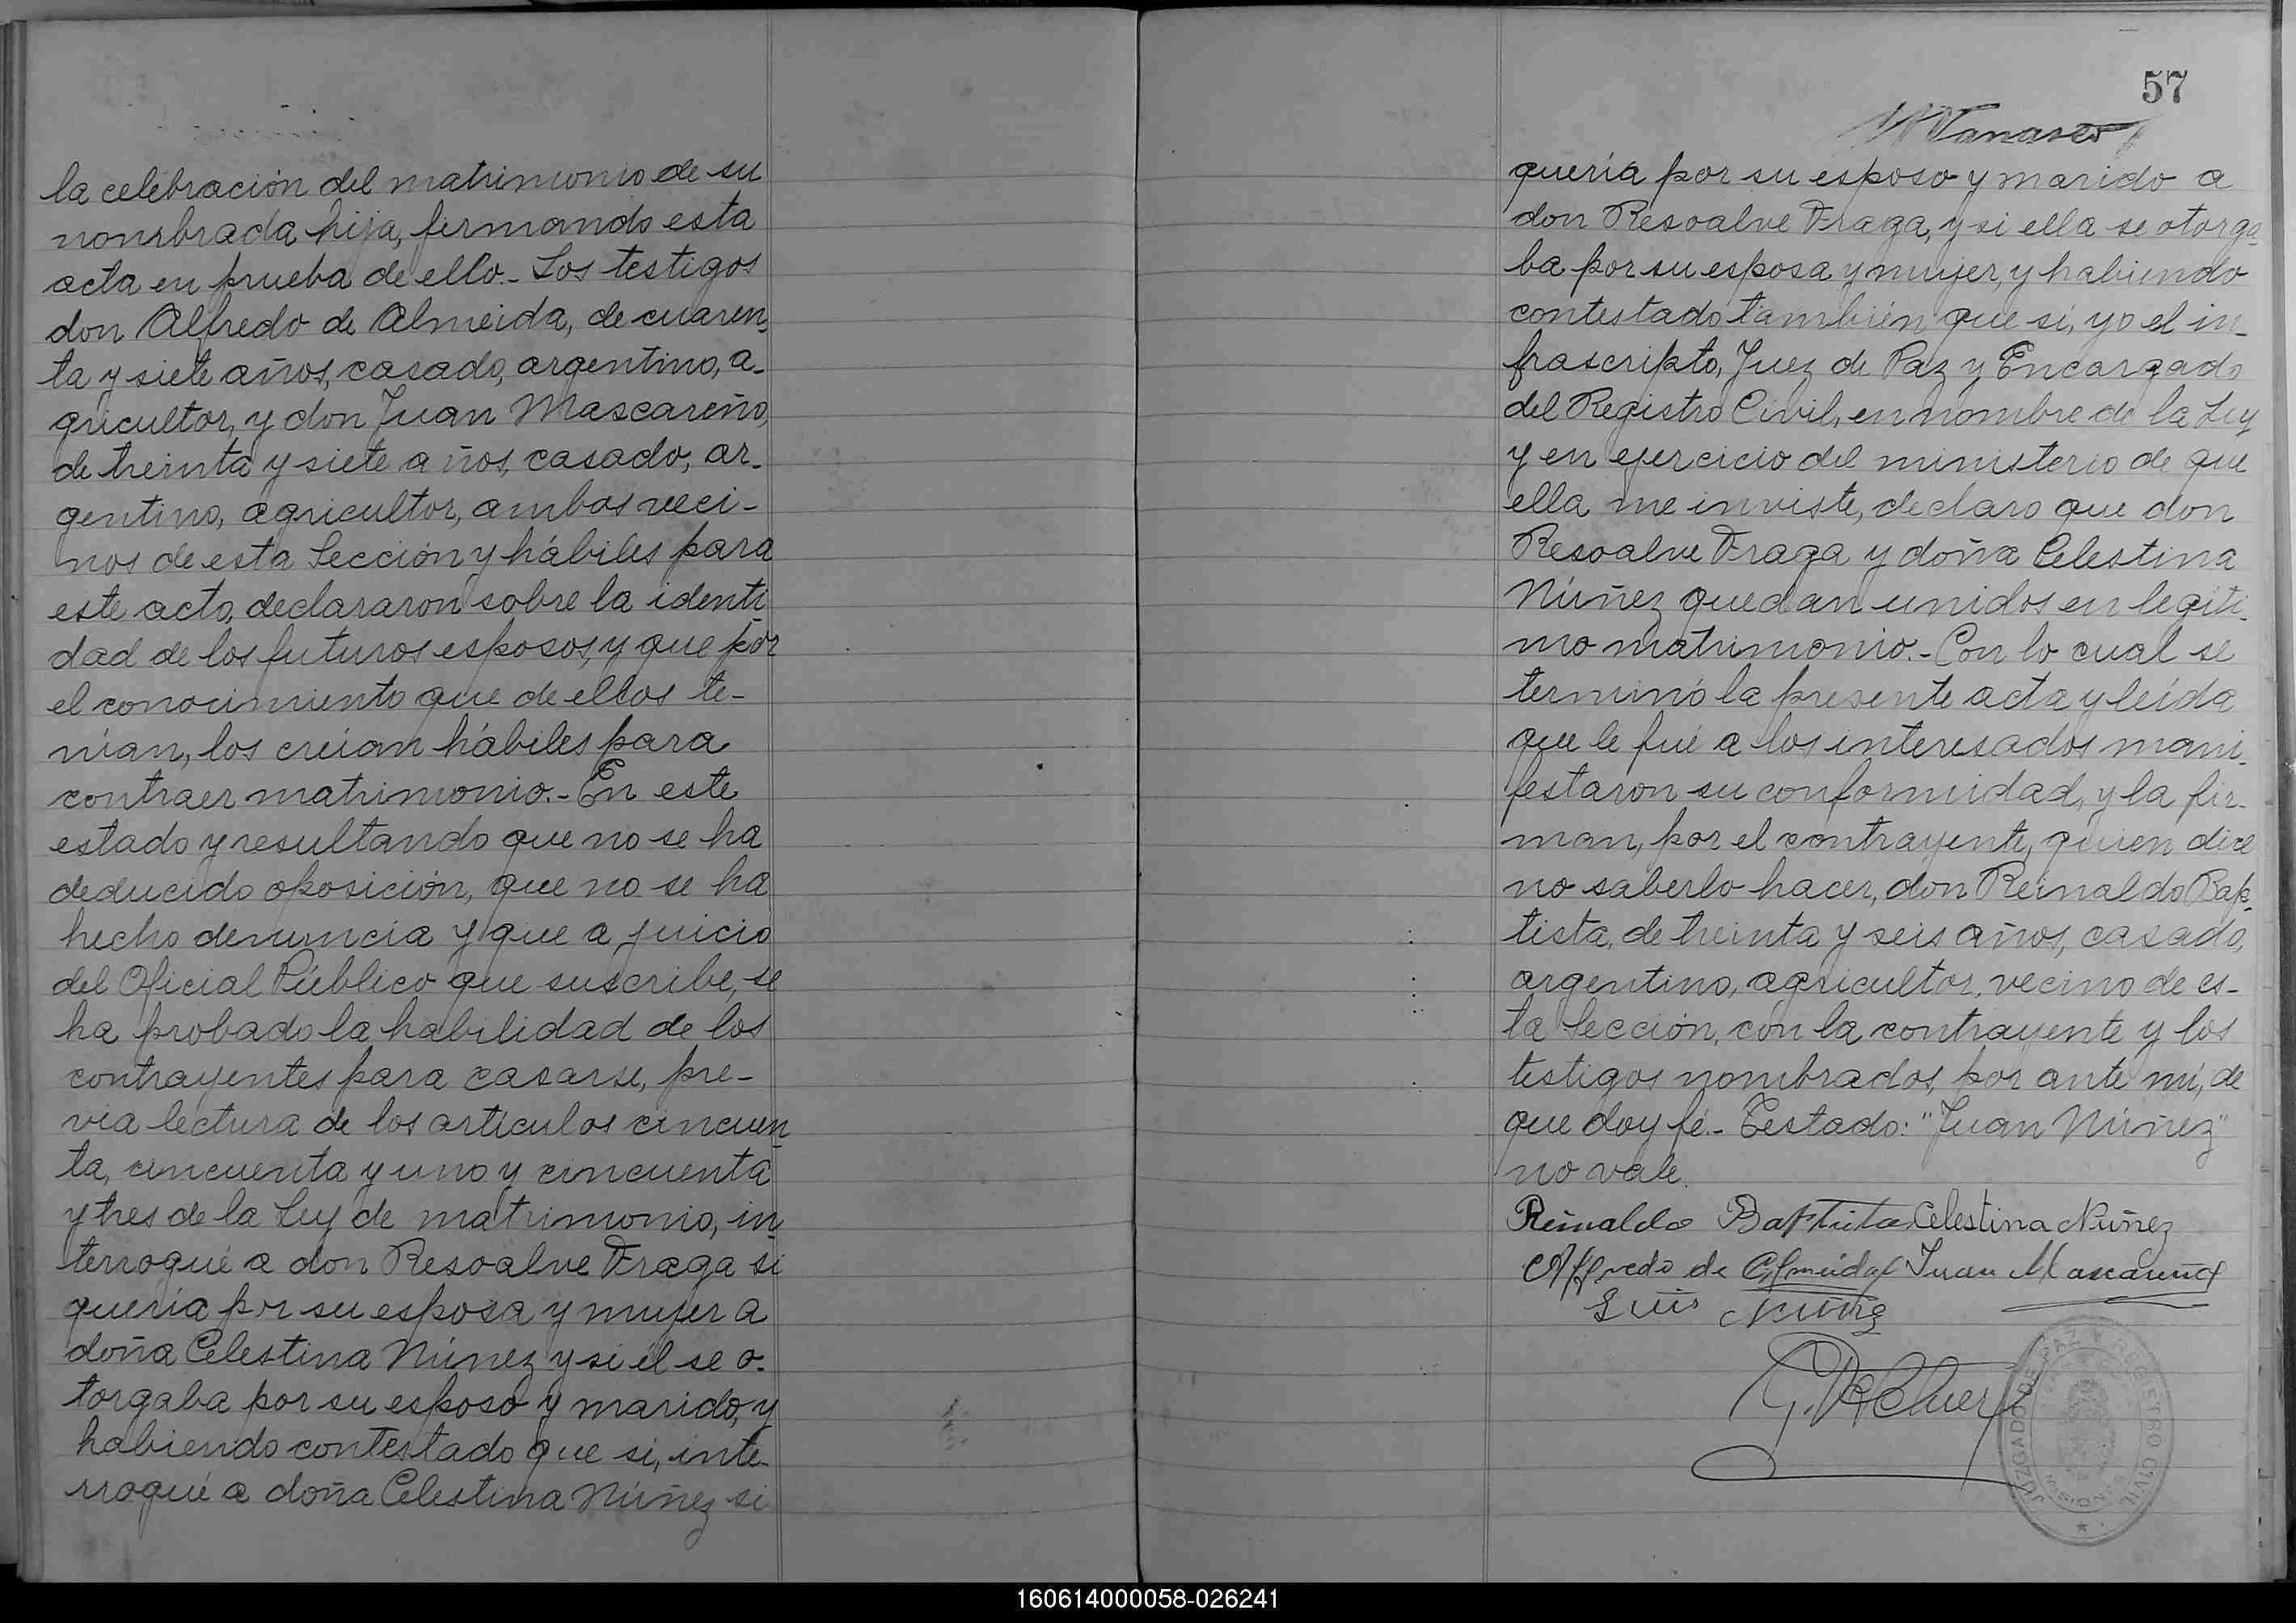 la celebración del matrimonio de su
nombrada hija, firmando esta
acta en prueba de ello.- Los testigos
don Alfredo de Almeida, de cuaren-
ta y siete años, casado, argentino, a-
gricultor, y don Juan Mascareño,
de treinta y siete años, casado, ar-
gentino, agricultor, ambos veci-
nos de esta Sección y hábiles para
este acto, declararon sobre la identi-
dad de los futuros esposos, y que por
el conocimiento que de ellos te-
nían, los creían hábiles para
contraer matrimonio.- En este
estado y resultando que no se ha
deducido oposición, que no se ha
hecho denuncia y que a juicio
del Oficial Público que suscribe, se
ha probado la habilidad de los
contrayentes para casarse, pre-
via lectura de los artículos cincuen-
ta, cincuenta y uno y cincuenta
y tres de la Ley de matrimonio, in-
terrogué a don Resoalve Fraga si
quería por su esposa y mujer a
doña Celestina Núnez y si el se o-
torgaba por su esposo y marido, y
habiendo contestado que si, inte-
rrogué a doña Celestina Núñez si
57
quería por su esposo y marido a
don Resoalve Fraga, y si ella se otorga-
ba por su esposa y mujer, y habiendo
contestado también que sí, yo el in-
frascripto, Juez de Paz y Encargado
del Registro Civil, en nombre de la Ley
y en ejercicio del ministerio de que
ella me inviste, declaro que don
Resoalve Fraga y doña Celestina
Núñez quedan unidos en legíti-
mo matrimonio.- Con lo cual se
terminó la presente acta y leída
que le fué a los interesados mani-
festaron su conformidad, y la fir-
man, por el contrayente, quien dice
no saberlo hacer, don Reinaldo Bap-
tista, de treinta y seis años, casado,
argentino, agricultor, vecino de es-
ta Sección, con la contrayente y los
testigos nombrados, por ante mí, de
que doy fé.- Testado: "Juan Núñez"
no vale.
Reinaldo Baptista Celestina Núñez
Alfredo de Almeida Juan Mascareño
Luis Nuñez
JUZGADO DE PAZ Y REGISTRO CIVIL
MISIONES
160614000058-026241